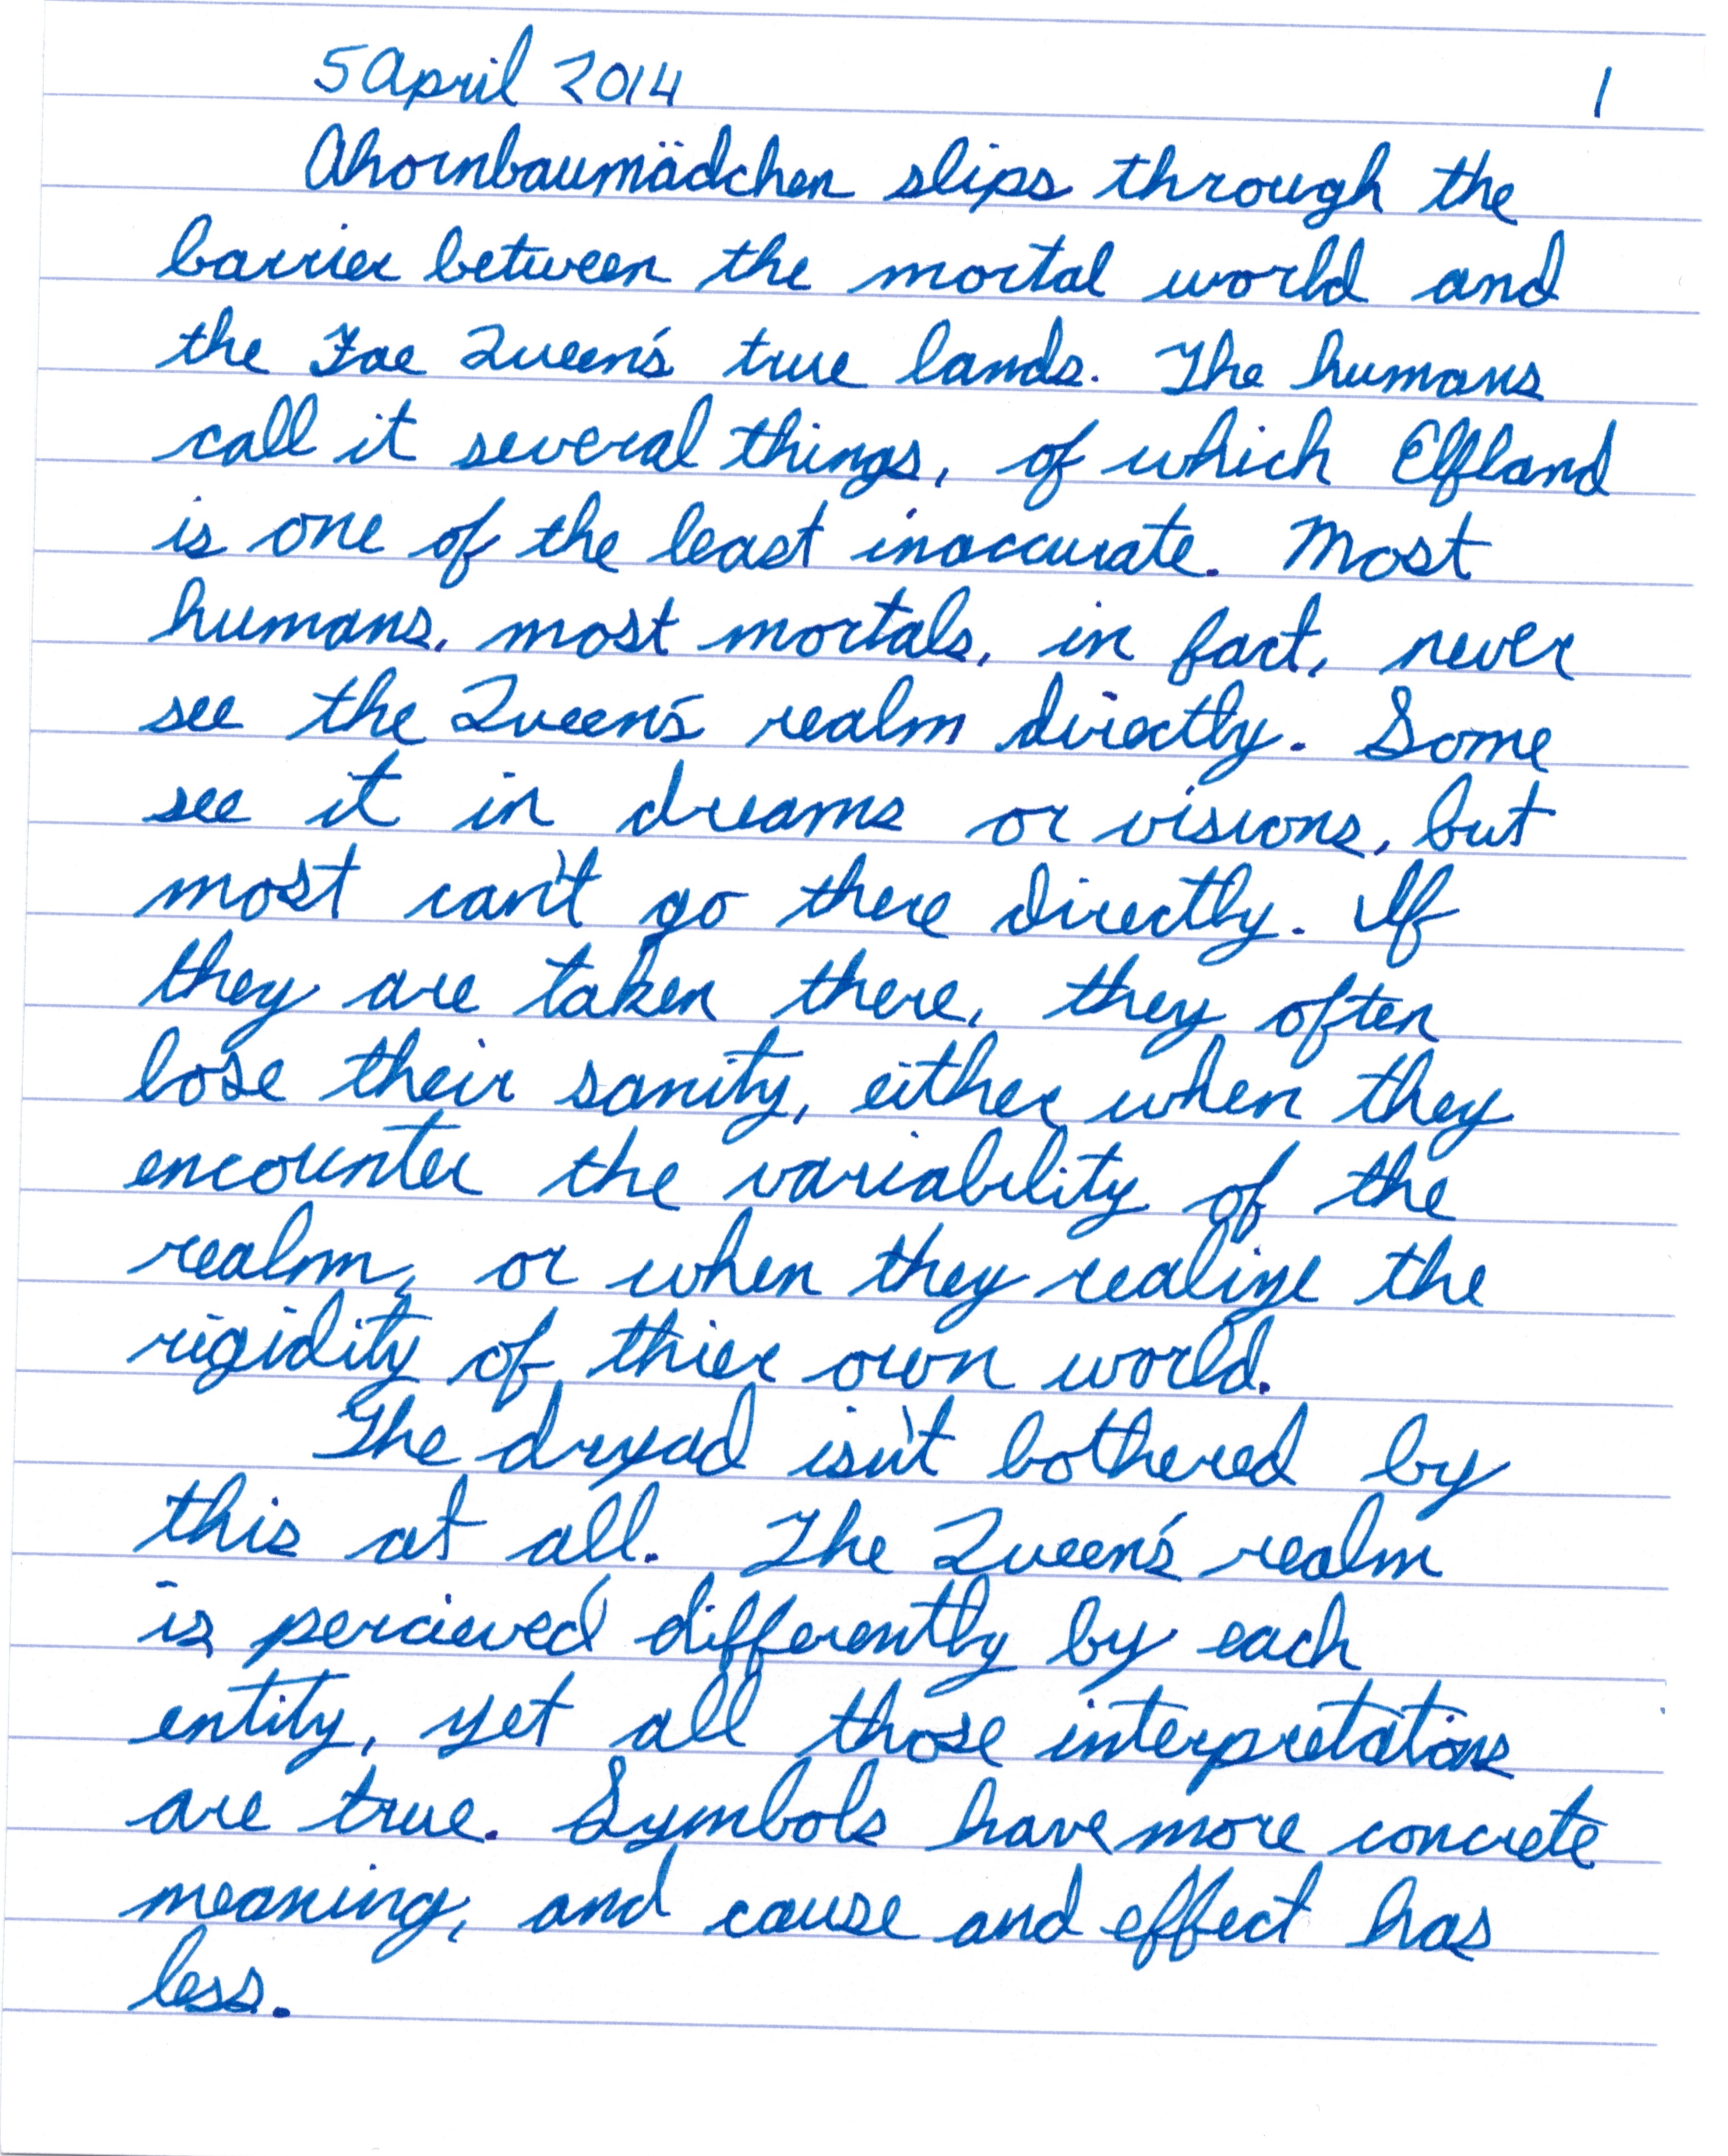 5 April 2014 1
Ahornbaumädchen slips through the
barrier between the mortal world and
the Fae Queen's true lands. The humans
call it several things, of which Elfland
is one of the least inaccurate. Most
humans, most mortals, in fact, never
see the Queen's realm directly. Some
see it in dreams or visions, but
most can't go there directly. If
they are taken there, they often
lose their sanity, either when they
encounter the variability of the
realm, or when they realize the
rigidity of thier own world.
The dryad isn't bothered by
this at all. The Queen's realm
is percieved differently by each
entity, yet all those interpretations
are true. Symbols have more concrete
meaning, and cause and effect has
less.